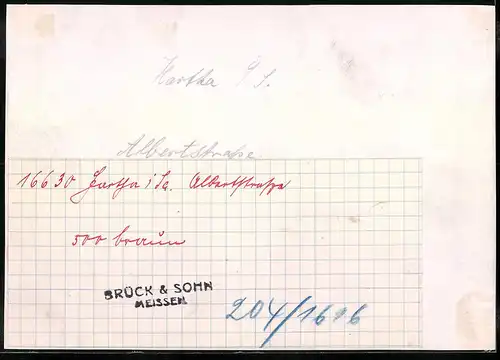 Hartha i. S.
Albertstraße.
16630 Hartha i. Sa. Albertstraße
500 braun
BRÜCK & SOHN
MEISSEN
204/1616